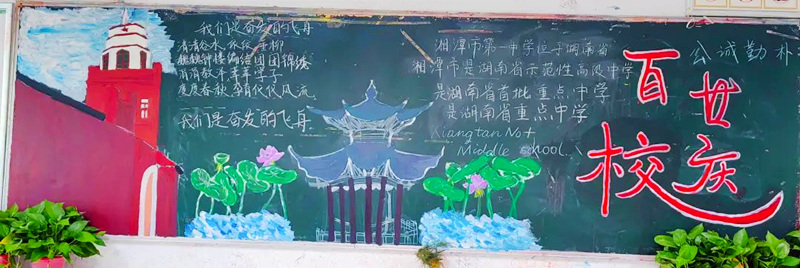 我们是奋发的飞舟
青青谷水 依依垂柳
巍巍钟楼 编绘团团锦绣
菁菁教本 莘莘学子
度度春秋 孕育代代风流
我们是奋发的飞舟
湘潭市第一中学位于湖南省
湘潭市是湖南省示范性高级中学
是湖南省首批重点中学
是湖南省重点中学
Xiangtan No.1
Middle school.
公诚勤朴
百廿
校庆